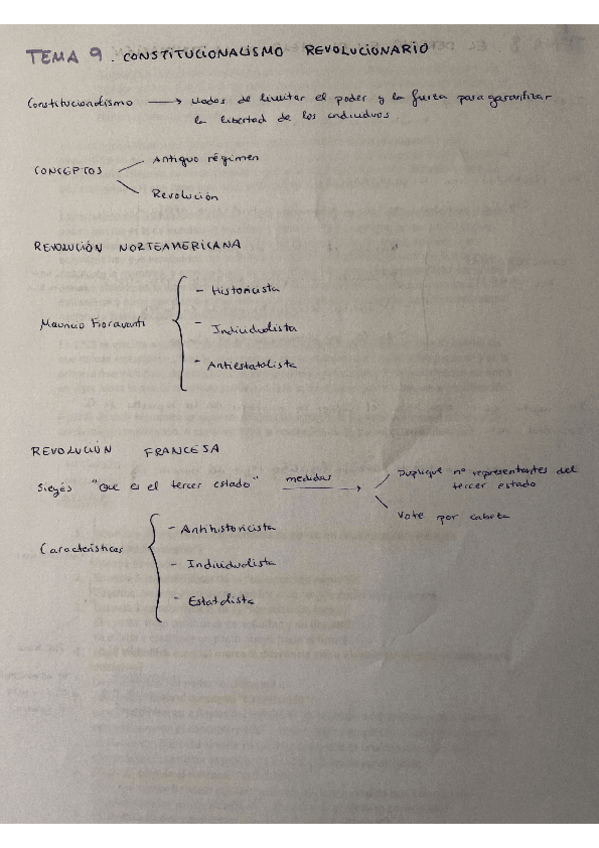 TEMA 9. CONSTITUCIONALISMO REVOLUCIONARIO
Constitucionalismo → Modos de limitar el poder y la fuerza para garantizar
la libertad de los individuos
CONCEPTOS
Antiguo régimen
Revolución
REVOLUCIÓN NORTEAMERICANA
Mauricio Fioravanti
- Historicista
- Individualista
- Antiestatalista
REVOLUCIÓN FRANCESA
Sieyés "Que es el tercer estado" medidas → Duplique nº representantes del
tercer estado
Vote por cabeza
Características
- Antihistoricista
- Individualista
- Estatalista